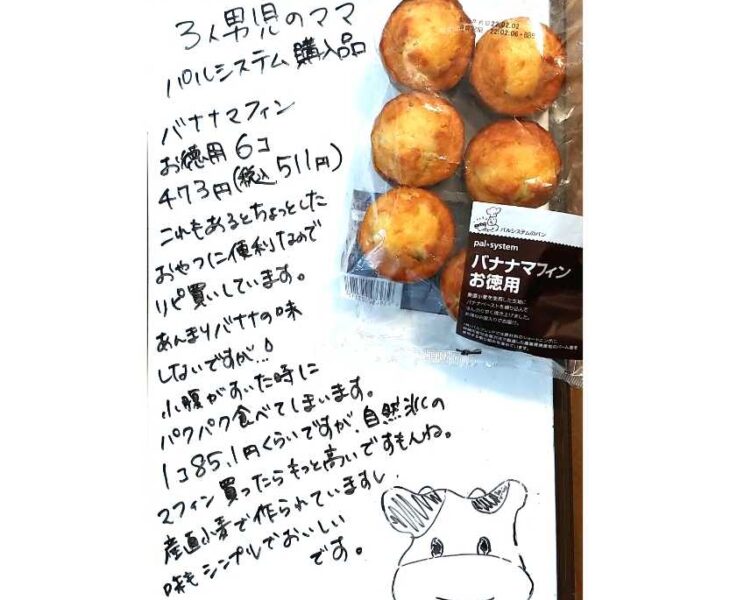 3人男児のママ
パルシステム購入品
バナナマフィン
お徳用6コ
473円(税込511円)
これもあるとちょっとした
おやつに便利なので
リピ買いしています。
あんまりバナナの味
しないですが…
小腹がすいた時に
パクパク食べてしまいます。
1コ85.1円くらいですが、自然派の
マフィン買ったらもっと高いですもんね。
産直小麦で作られていますし、
味もシンプルでおいしい
です。
22.02.02
22.02.06
パルシステムのパン
pal*system
バナナマフィン
お徳用